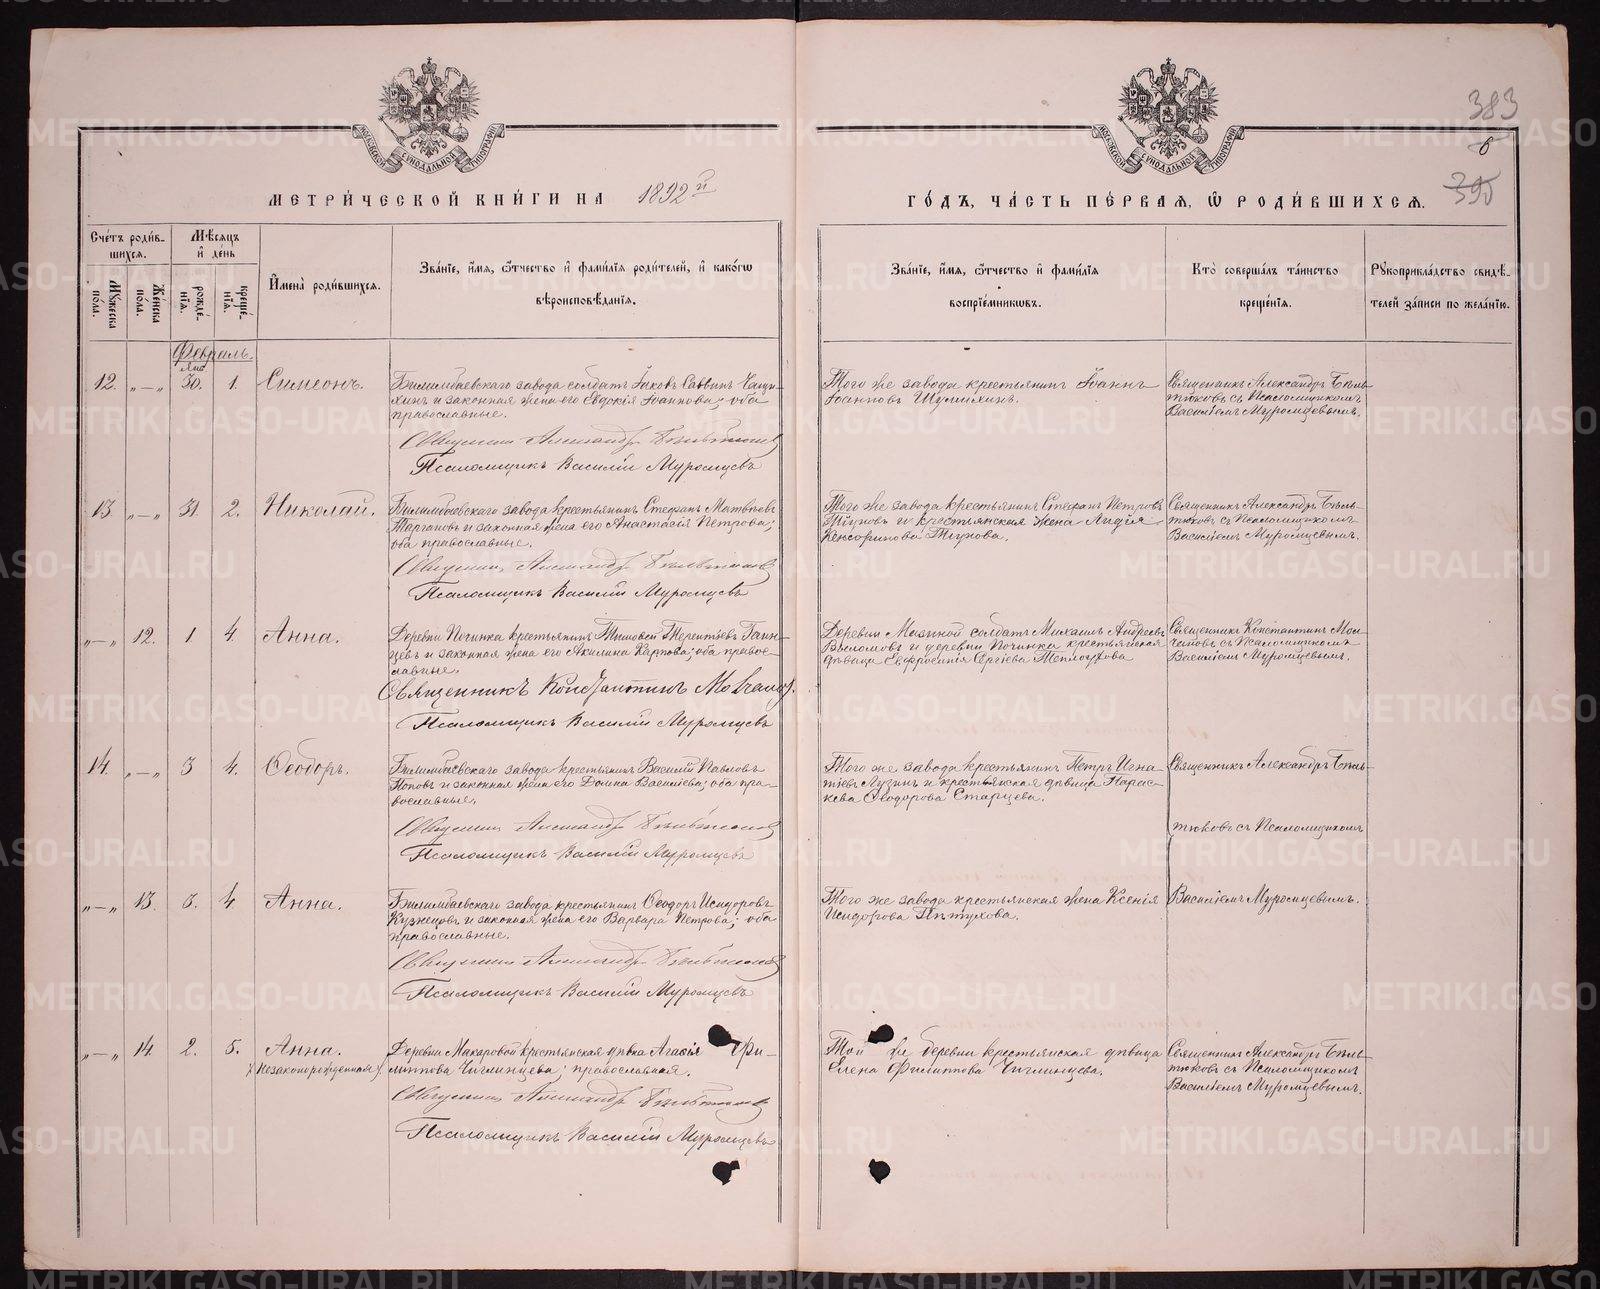 383
6
390
МОСКОВСКОЙ СУНОДАЛЬНОЙ ТИПОГРАФІИ
МОСКОВСКОЙ СУНОДАЛЬНОЙ ТИПОГРАФІИ
МЕТРИ́ЧЕСКОЙ КНИ́ГИ НА 1892й
ГО́ДЪ, ЧА́СТЬ ПЕ́РВАЯ, Ѿ РОДИ́ВШИХСЯ.
Сче́тъ роди́в-
шихся.
Мꙋжеска по́ла.
Же́нска по́ла.
Мѣ́сяцъ и҆ де́нь
рожде́-
нїя.
креще́-
нїя.
И҆мена̀ роди́вшихся.
Зва́нїе, и҆́мя, ѻ҆́тчество и҆ фами́лїя роди́телей, и҆ како́гѡ
вѣроисповѣ́данїя.
Зва́нїе, и҆́мя, ѻ҆́тчество и҆ фами́лїя
воспрїе́мникѡвъ.
Кто̀ соверша́лъ та́инство
креще́нїя.
Рꙋкоприкла́дство свидѣ́-
телей за́писи по жела́нїю.
Февраль.
Янв.
12. „—„ 30. 1. Симеонъ.
Билимбаевскаго завода солдатъ Іаковъ Саввинъ Чащи-
хинъ и законная жена его Евдокія Іоаннова; оба
православные.
Священникъ Александръ Бѣльтюковъ
Псаломщикъ Василій Муромцевъ
Того же завода крестьянинъ Іоаннъ
Іоанновъ Шулихинъ.
Священникъ Александръ Бѣль-
тюковъ съ Псаломщикомъ
Василіемъ Муромцевымъ.
13. „—„ 31. 2. Николай.
Билимбаевскаго завода крестьянинъ Стефанъ Матвѣевъ
и законная жена его Анастасія Петрова;
оба православные.
Священникъ Александръ Бѣльтюковъ
Псаломщикъ Василій Муромцевъ
Того же завода крестьянинъ Стефанъ Петровъ
Тіуновъ и крестьянская жена Лидія
Кенсоринова Тіунова.
Священникъ Александръ Бѣль-
тюковъ съ Псаломщикомъ
Василіемъ Муромцевымъ.
„—„ 12. 1. 4. Анна.
Деревни Починка крестьянинъ Тимовей Терентьевъ
и законная жена его Акилина Карпова; оба правос-
лавные.
Священникъ Константинъ Молчановъ.
Псаломщикъ Василій Муромцевъ
Деревни Мазиной солдатъ Михаилъ Андреевъ
и деревни Починка крестьянская
дѣвица Евфросинія Сергіева Теплоухова
Священникъ Константинъ Мол-
чановъ съ Псаломщикомъ
Василіемъ Муромцевымъ.
14. „—„ 3 4. Ѳеодоръ.
Билимбаевскаго завода крестьянинъ Василій Павловъ
Поповъ и законная жена его Домна Васильева; оба пра-
вославные.
Священникъ Александръ Бѣльтюковъ
Псаломщикъ Василій Муромцевъ
Того же завода крестьянинъ Петръ Игна-
тіевъ Лузинъ и крестьянская дѣвица Парас-
кева Ѳеодорова Старцева.
Священникъ Александръ Бѣль-
тюковъ съ Псаломщикомъ
„—„ 13. 3. 4. Анна.
Билимбаевскаго завода крестьянинъ Ѳеодоръ Исидоровъ
Кузнецовъ и законная жена его Варвара Петрова; оба
православные.
Священникъ Александръ Бѣльтюковъ
Псаломщикъ Василій Муромцевъ
Того же завода крестьянская жена Ксенія
Исидорова Пѣтухова.
Василіемъ Муромцевымъ.
„—„ 14. 2. 5. Анна.
(незаконорожденная)
Деревни Макаровой крестьянская дѣвка Агаѳія Фи-
липпова Чиглинцева; православная.
Священникъ Александръ Бѣльтюковъ
Псаломщикъ Василій Муромцевъ
Той же деревни крестьянская дѣвица
Елена Филиппова Чиглинцева.
Священникъ Александръ Бѣль-
тюковъ съ Псаломщикомъ
Василіемъ Муромцевымъ.
METRIKI.GASO-URAL.RU